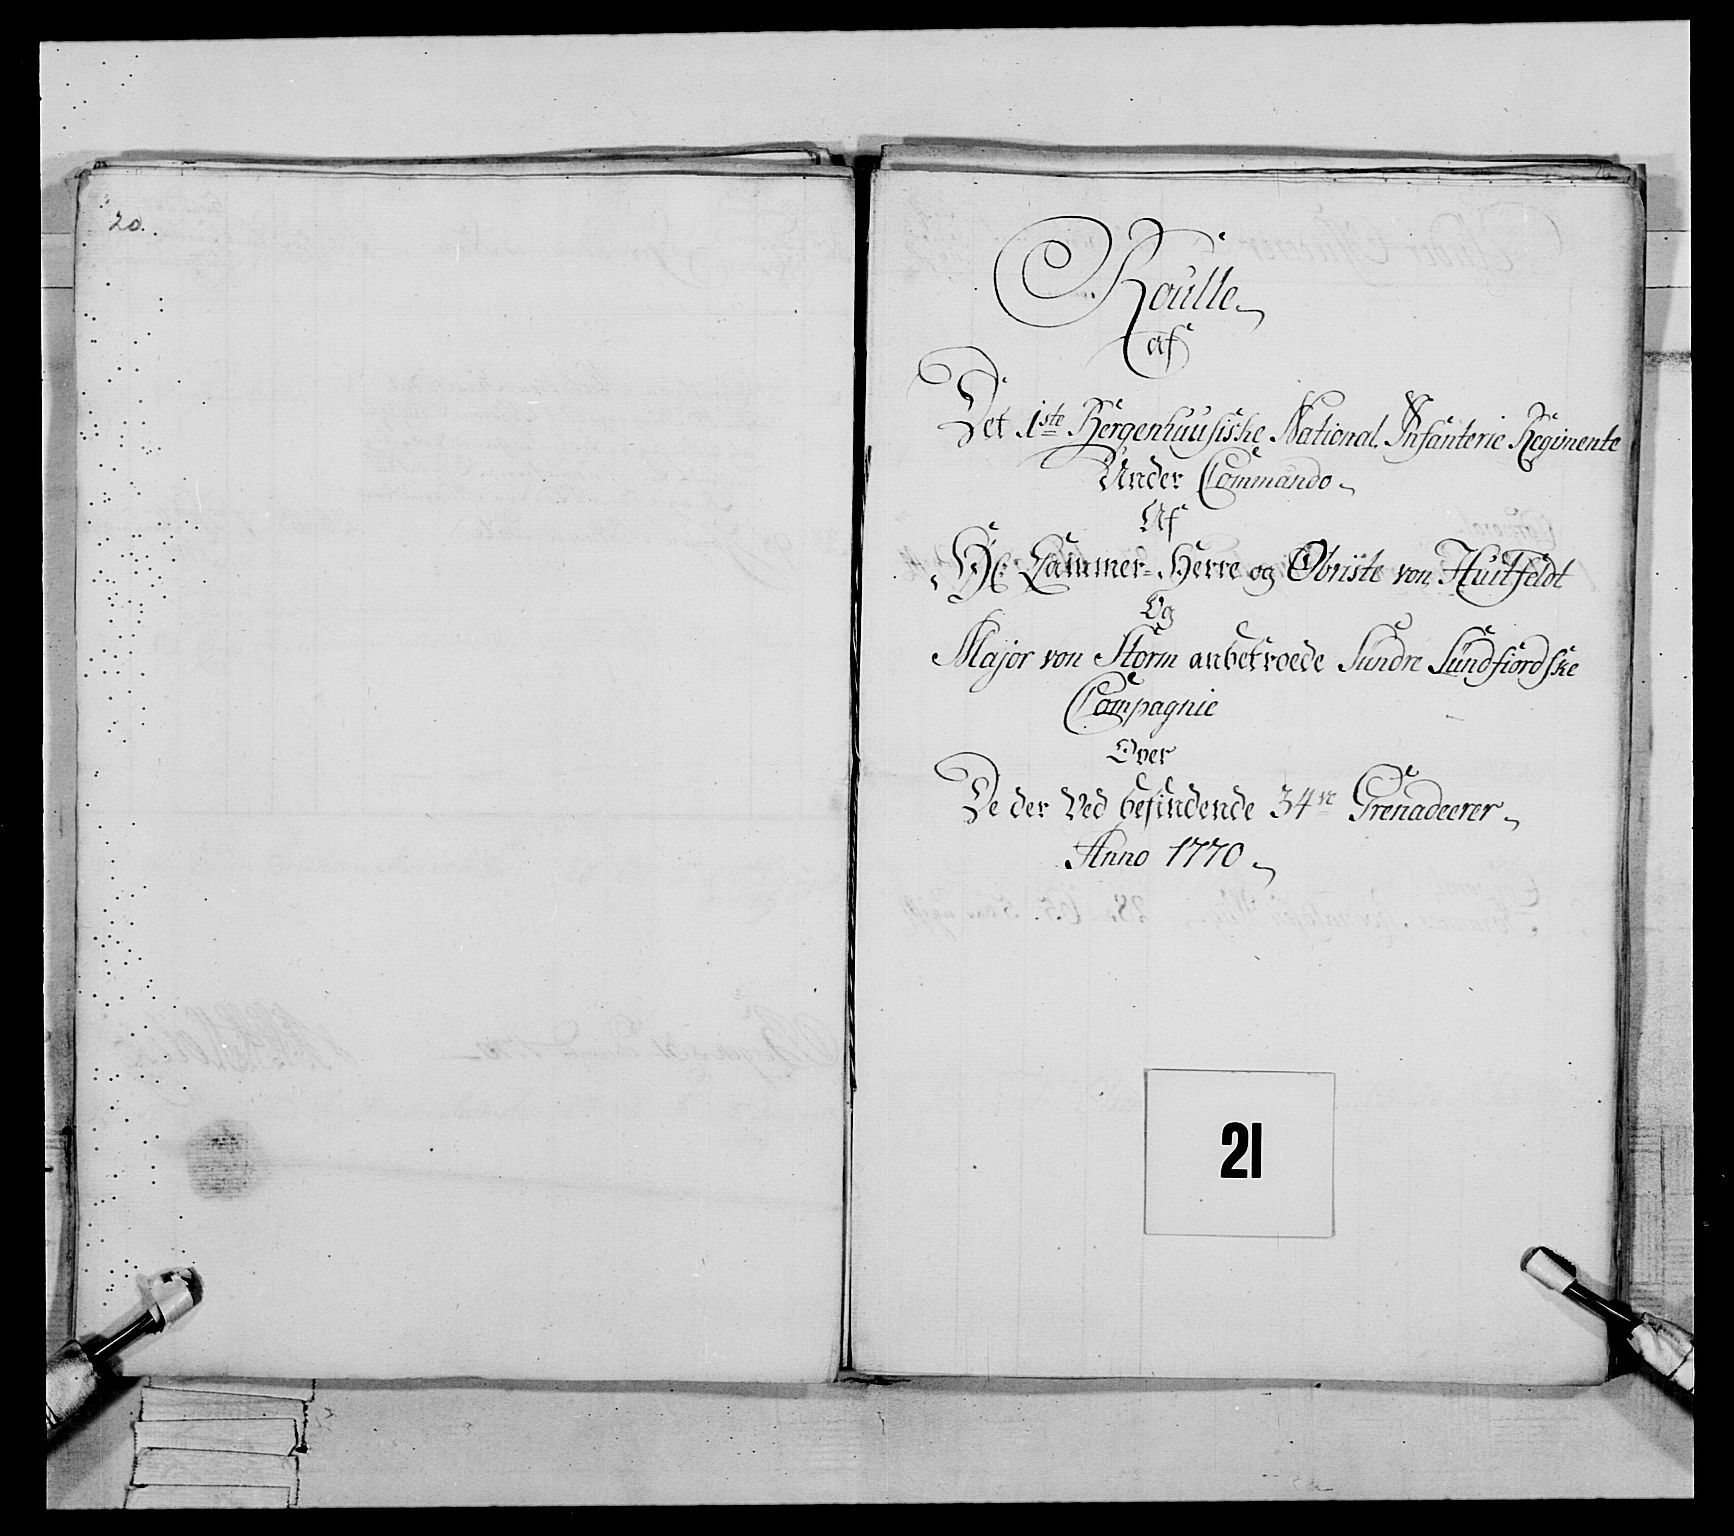 20.
Roulle
af
Det 1ste Bergenhuusiske National Infanterie Regimente
Under Commando
Af
Hr. Cammer-Herre og Obriste von Huitfeldt
Og
Major von Storm anbetroede Sundre Sundfiordske
Compagnie
Over
De der Ved befindende 34re Grenadeerer
Anno 1770
21